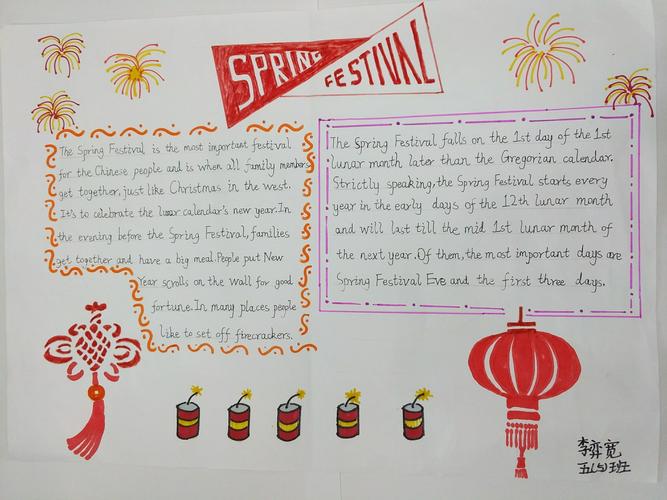 SPRING FESTIVAL
The Spring Festival is the most important festival
for the Chinese people and is when all family members
get together, just like Christmas in the west.
It's to celebrate the lunar calendar's new year. In
the evening before the Spring Festival, families
get together and have a big meal. People put New
Year scrolls on the wall for good
fortune. In many places people
like to set off firecrackers.
The Spring Festival falls on the 1st day of the 1st
lunar month later than the Gregorian calendar.
Strictly speaking, the Spring Festival starts every
year in the early days of the 12th lunar month
and will last till the mid 1st lunar month of
the next year. Of them, the most important days are
Spring Festival Eve and the first three days.
李弈宽
五(5)班